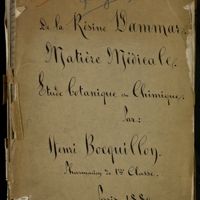 De la Résine Dammar.
Matière Médicale.
Etude botanique & Chimique.
Par:
Henri Bocquillon.
Pharmacien de 1ère Classe.
Paris 188